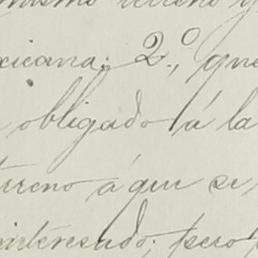 mismo terreno y
xicana; 2.º, que
obligado á la
terreno á que se
interesado; pero